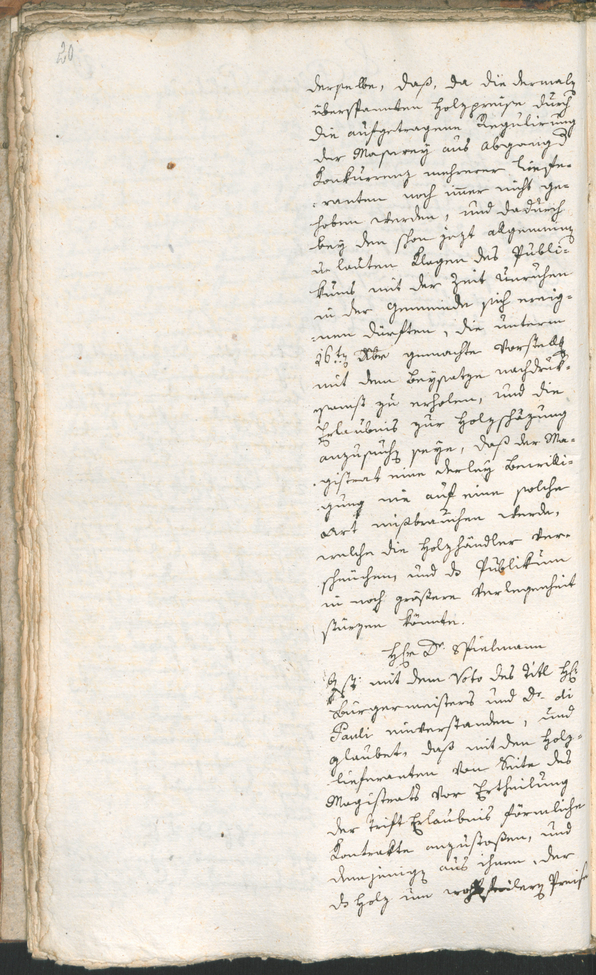 20
derselbe, daß, da die dermalen
überspannten Holzpreise durch
die aufgetragene Regulirung
der Masserey aus Abgang d
Konkurrenz mehrerer Liefe-
ranten noch immer nicht ge-
hoben werden, und dadurch
bey den schon jezt allgemein
u. lauten Klagen des Publi-
kums mit der Zeit Unruhen
in der Gemeinde sich ereig-
nen dürften, die unterm
26ten gemachte Vorstellg
mit dem Beysatze nachdruk-
samst zu erholen, und die
Erlaubnis zur Holzschäzung
anzusuchen seye, daß der Ma-
gistrat eine derley Bewilli-
gung nie auf eine solche
Art mißbrauchen werde,
welche die Holzhändler ver-
scheuchen, und das Publikum
in noch größere Verlegenheit
stürzen könnte.
Hr Dr. Spielmann
Ist mit dem Voto des Titl Hr
Bürgermeisters und Dr. di
Pauli einverstanden, und
glaubet, daß mit den Holz-
lieferanten von Seite des
Magistrats vor Ertheilung
der Trift Erlaubnis förmliche
Kontrakte anzustoßen, und
demjenigen aus ihnen, der
das Holz um wohlfeilern Preise